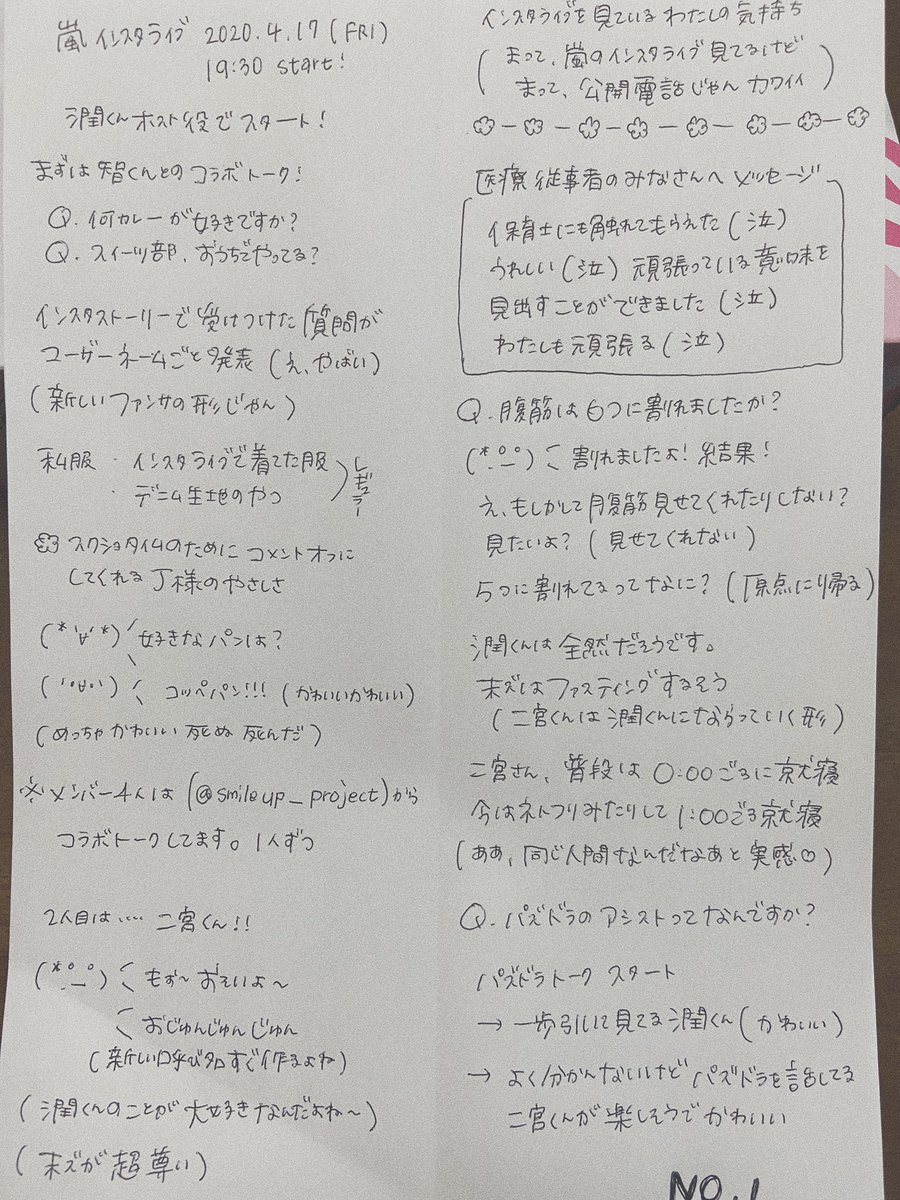 嵐 インスタライブ 2020.4.17(FRI)
19:30 start!
潤くんホスト役でスタート!
まずは智くんとのコラボトーク!
Q.何カレーが好きですか?
Q.スイーツ部、おうちでやってる?
インスタストーリーで受けつけた質問が
ユーザーネームごと発表(え、やばい)
(新しいファンサの形じゃん)
私服・インスタライブで着てた服
・デニム生地のやつ
レギュラー
スクショタイムのためにコメントオフに
してくれるJ様のやさしさ
(*'∀'*) 好きなパンは?
コッペパン!!!(かわいいかわいい)
(めっちゃかわいい死ぬ死んだ)
※メンバー4人は(@smile up_project)から
コラボトークしてます。1人ずつ
2人目は‥‥二宮くん!!
もぉ〜おそいよ〜
おじゅんじゅんじゅん
(新しい呼び名すぐ作るよね)
(潤くんのことが大好きなんだよね〜)
(末ズが超尊い)
インスタライブを見ているわたしの気持ち
(まって、嵐のインスタライブ見てるけど
まって、公開電話じゃんカワイイ)
医療従事者のみなさんへメッセージ
保育士にも触れてもらえた(泣)
うれしい(泣)頑張っている意味を
見出すことができました(泣)
わたしも頑張る(泣)
Q.腹筋は6つに割れましたか?
割れましたよ!結果!
え、もしかして腹筋見せてくれたりしない?
見たいよ?(見せてくれない)
5つに割れてるってなに?(原点にり帰る)
潤くんは全然だそうです。
末ズはファスティングするそう
(二宮くんは潤くんにならっていく形)
二宮さん、普段は0:00ごろに就寝
今はネトフリみたりして1:00ごろ就寝
(ああ、同じ人間なんだなあと実感♡)
Q.パズドラのアシストってなんですか?
パズドラトーク スタート
→ 一歩引いて見てる潤くん(かわいい)
→ よく分かんないけどパズドラを話してる
二宮くんが楽しそうでかわいい
NO.1